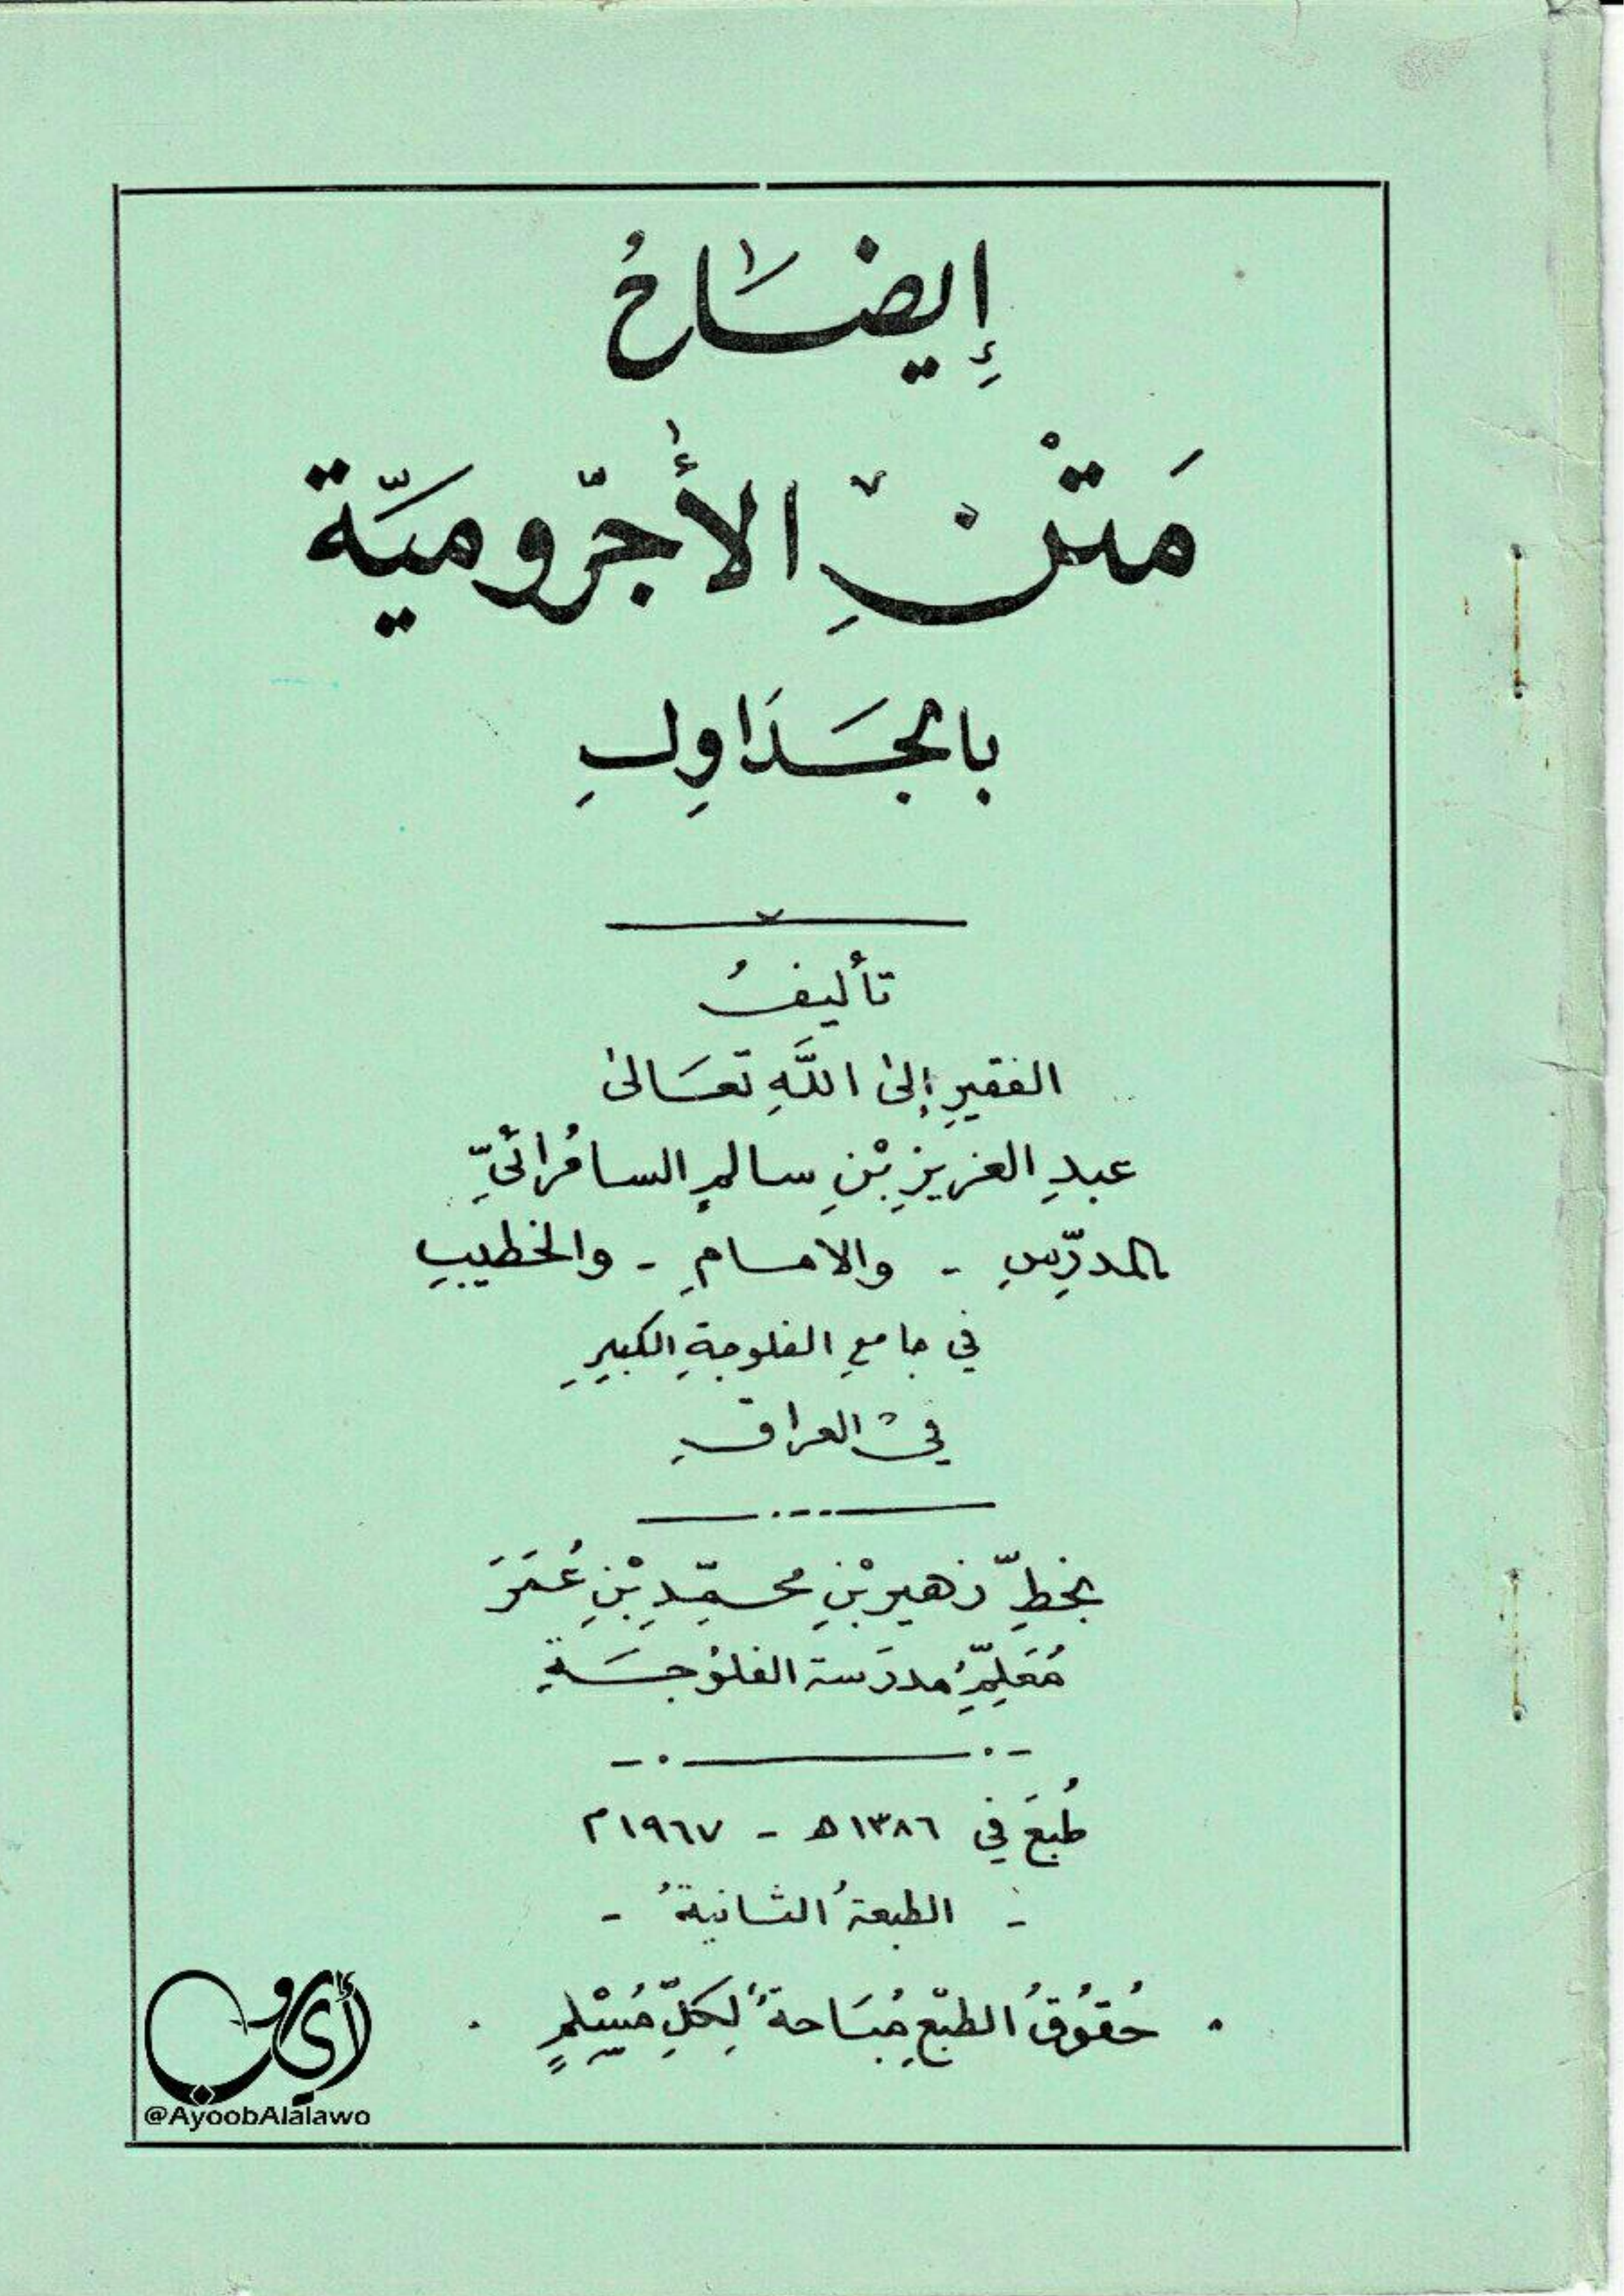 إيضَاحُ
مَتْنِ الأجّروميَّة
بالجَدَاوِلِ
تأليفُ
الفقيرِ إلىٰ اللَّهِ تعَالىٰ
عبدِ العزيزِ بْنِ سالمٍ السامُرائيِّ
المدرِّسِ - والامامِ - والخطيبِ
في جامعِ الفلوجةِ الكبيرِ
في العراقِ
بخطِّ زهيرِ بْنِ محمّدِ بْنِ عُمَرَ
مُعَلِّمِ مدرَسة الفلوُجَةِ
طُبعَ في ١٣٨٦ه - ١٩٦٧م
- الطبعةُ الثانيةُ -
. حُقوُقُ الطبْعِ مُبَاحةٌ لِكلِّ مُسْلمٍ .
أيوب
@AyoobAlalawo